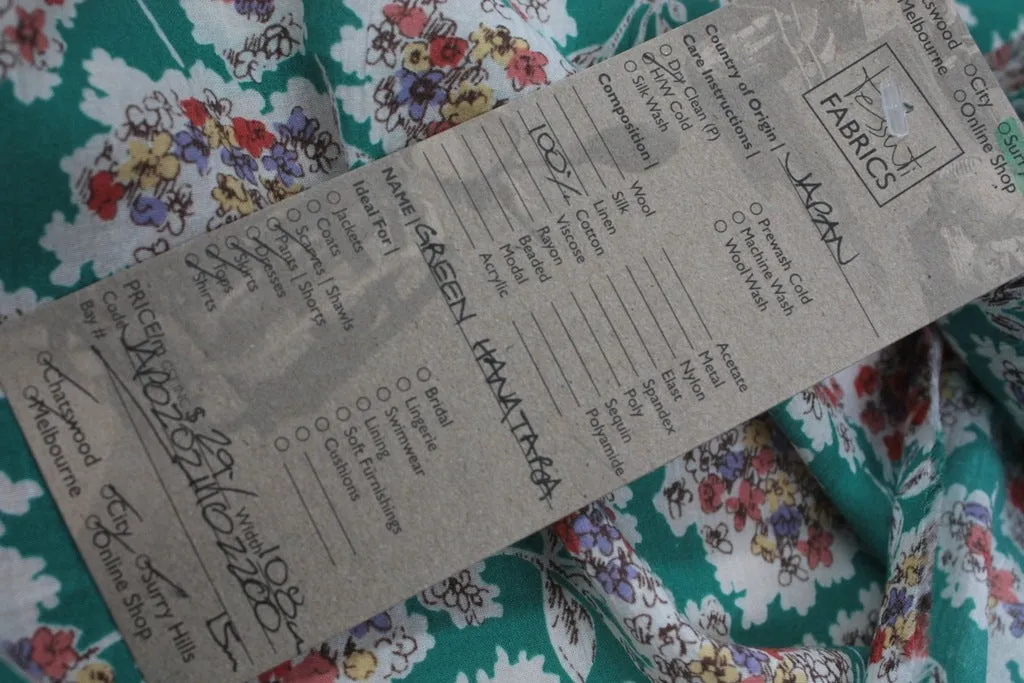 Chatswood
Melbourne
City
Online Shop
Surry
Tessuti
FABRICS
Country of Origin | JAPAN
Care Instructions |
Dry Clean (P)
H/W Cold
Silk Wash
Prewash Cold
Machine Wash
Wool Wash
Composition |
Wool
Silk
Linen
100% Cotton
Viscose
Rayon
Beaded
Modal
Acrylic
Acetate
Metal
Nylon
Elast
Spandex
Poly
Sequin
Polyamide
NAME | GREEN HANATABA
Ideal For |
Jackets
Coats
Scarves | Shawls
Pants | Shorts
Dresses
Skirts
Tops
Shirts
Bridal
Lingerie
Swimwear
Lining
Soft Furnishings
Cushions
PRICE $29/ Width 108
Code
Bay #
15m
Chatswood
Melbourne
City
Online Shop
Surry Hills